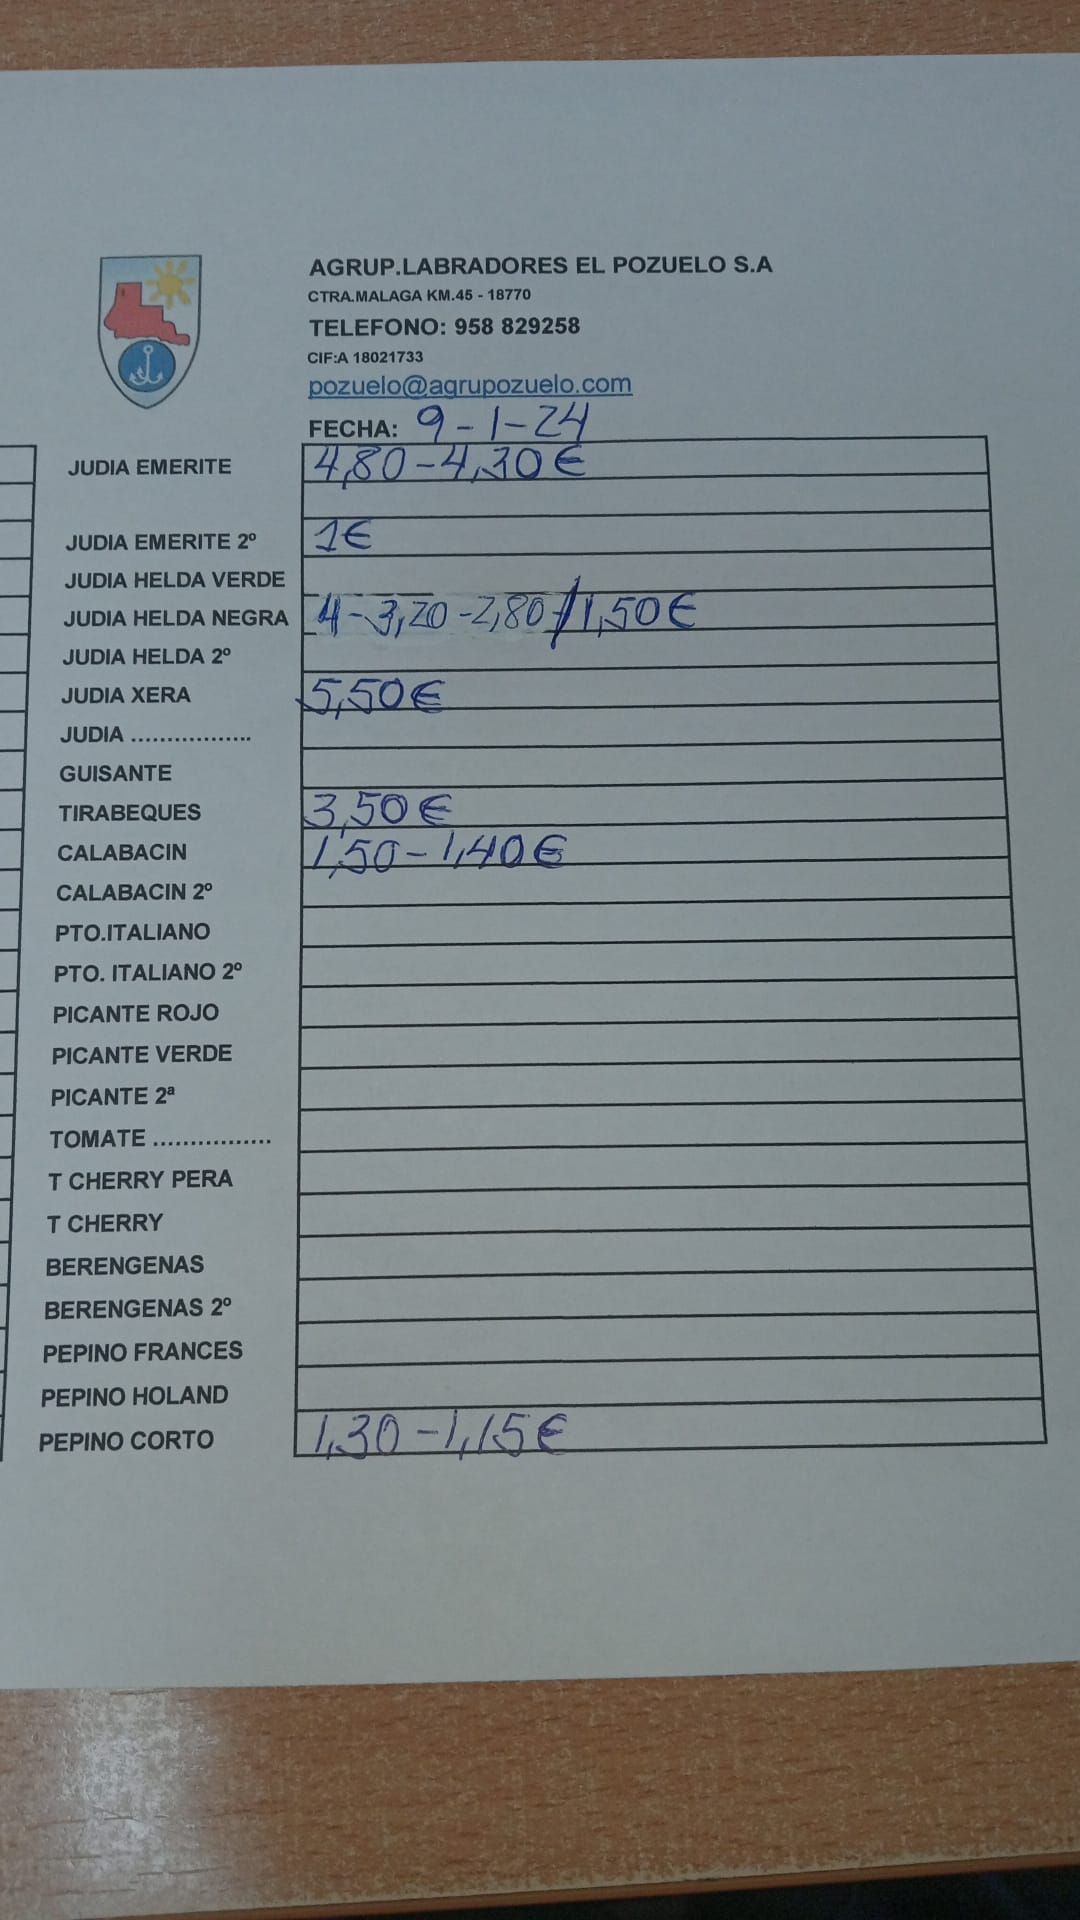 AGRUP.LABRADORES EL POZUELO S.A
CTRA.MALAGA KM.45 - 18770
TELEFONO: 958 829258
CIF:A 18021733
pozuelo@agrupozuelo.com
FECHA: 9-1-24
JUDIA EMERITE 4,80-4,30€
JUDIA EMERITE 2º 1€
JUDIA HELDA VERDE
JUDIA HELDA NEGRA 4-3,20-2,80-/1,50€
JUDIA HELDA 2º
JUDIA XERA 5,50€
JUDIA .................
GUISANTE
TIRABEQUES 3,50€
CALABACIN 1,50-1,40€
CALABACIN 2º
PTO.ITALIANO
PTO. ITALIANO 2º
PICANTE ROJO
PICANTE VERDE
PICANTE 2ª
TOMATE ................
T CHERRY PERA
T CHERRY
BERENGENAS
BERENGENAS 2º
PEPINO FRANCES
PEPINO HOLAND
PEPINO CORTO 1,30-1,15€